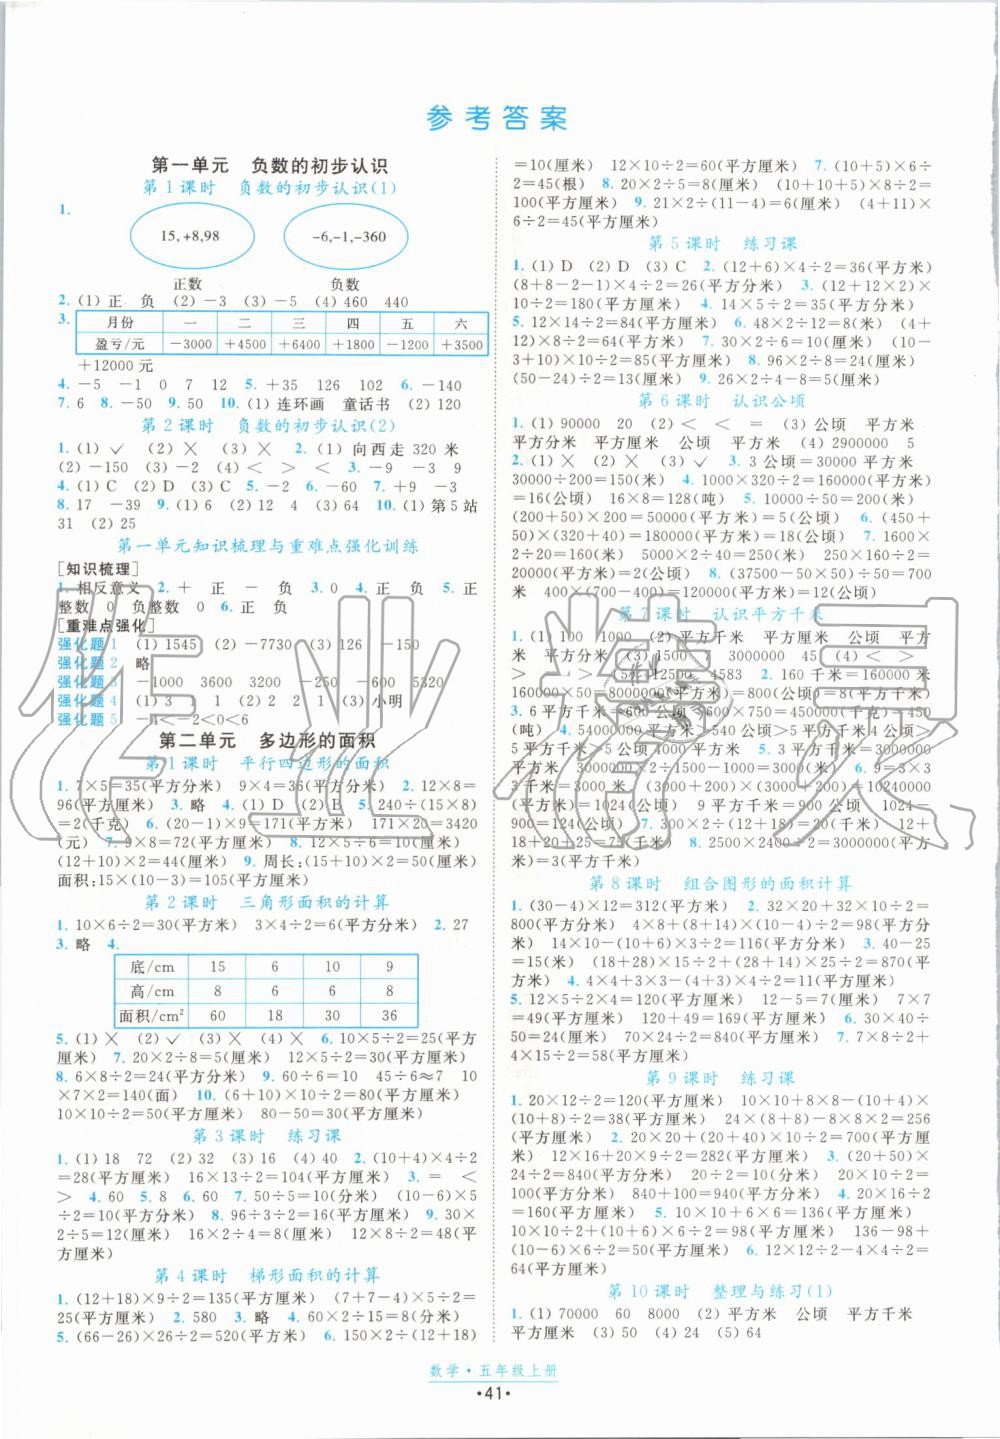 参考答案
第一单元 负数的初步认识
第1课时 负数的初步认识(1)
1.
15,+8,98
-6,-1,-360
正数 负数
2. (1)正 负 (2)-3 (3)-5 (4)460 440
3. 月份 一 二 三 四 五 六
盈亏/元 -3000 +4500 +6400 +1800 -1200 +3500
+12000 元
4. -5 -1 0 7 12 5. +35 126 102 6. -140
7. 6 8. -50 9. 50 10. (1)连环画 童话书 (2)120
第2课时 负数的初步认识(2)
1. (1)✓ (2)✕ (3)✕ 2. (1)向西走 320 米
(2)-150 (3)-2 (4)< > < 3. -9 -3 9
4. (1)C (2)D (3)C 5. -2 6. -60 7. +9 -3
8. 17 -39 9. (1)6 (2)12 4 (3)64 10. (1)第5站
31 (2)25
第一单元知识梳理与重难点强化训练
[知识梳理]
1. 相反意义 2. + 正 - 负 3. 0 4. 正 负 5. 正
整数 0 负整数 0 6. 正 负
[重难点强化]
强化题1 (1)1545 (2)-7730 (3)126 -150
强化题2 略
强化题3 -1000 3600 3200 -250 -600 5320
强化题4 (1)3 1 1 (2)2 2 1 (3)小明
强化题5 -4<-2<0<6
第二单元 多边形的面积
第1课时 平行四边形的面积
1. 7×5=35(平方分米) 9×4=36(平方分米) 2. 12×8=
96(平方厘米) 3. 略 4. (1)D (2)B 5. 240÷(15×8)
=2(千克) 6. (20-1)×9=171(平方米) 171×20=3420
(元) 7. 9×8=72(平方厘米) 8. 12×5÷6=10(厘米)
(12+10)×2=44(厘米) 9. 周长:(15+10)×2=50(厘米)
面积:15×(10-3)=105(平方厘米)
第2课时 三角形面积的计算
1. 10×6÷2=30(平方米) 3×4÷2=6(平方分米) 2. 27
3. 略 4.
底/cm 15 6 10 9
高/cm 8 6 6 8
面积/cm² 60 18 30 36
5. (1)✕ (2)✓ (3)✕ (4)✕ 6. 10×5÷2=25(平方
厘米) 7. 20×2÷8=5(厘米) 12×5÷2=30(平方厘米)
8. 6×8÷2=24(平方分米) 9. 60÷6=10 45÷6≈7 10
×7×2=140(面) 10. (6+10)×10÷2=80(平方厘米)
10×10÷2=50(平方厘米) 80-50=30(平方厘米)
第3课时 练习课
1. (1)18 72 (2)32 (3)16 (4)40 2. (10+4)×4÷2
=28(平方厘米) 16×13÷2=104(平方厘米) 3. = <
> 4. 60 5. 8 6. 60 7. 50÷5=10(分米) (10-6)×5
÷2=10(平方分米) 8. 96÷3÷2=16(平方厘米) 9. 30
×2÷5=12(厘米) 16×2÷4=8(厘米) 12×8÷2=48(平
方厘米)
第4课时 梯形面积的计算
1. (12+18)×9÷2=135(平方厘米) (7+7-4)×5÷2=
25(平方厘米) 2. 580 3. 略 4. 60×2÷15=8(分米)
5. (66-26)×26÷2=520(平方米) 6. 150×2÷(12+18)
=10(厘米) 12×10÷2=60(平方厘米) 7. (10+5)×6÷
2=45(根) 8. 20×2÷5=8(厘米) (10+10+5)×8÷2=
100(平方厘米) 9. 21×2÷(11-4)=6(厘米) (4+11)×
6÷2=45(平方厘米)
第5课时 练习课
1. (1)D (2)D (3)C 2. (12+6)×4÷2=36(平方米)
(8+8-2-1)×4÷2=26(平方分米) 3. (12+12×2)×
10÷2=180(平方厘米) 4. 14×5÷2=35(平方分米)
5. 12×14÷2=84(平方厘米) 6. 48×2÷12=8(米) (4+
12)×8÷2=64(平方米) 7. 30×2÷10-3=3(厘米) (10-
3+10)×10÷2=85(平方厘米) 8. 96×2÷8=24(厘米)
60×2÷24=5(厘米) 9. 26×2÷4-8=5(厘米)
第6课时 认识公顷
1. (1)90000 20 (2)< < = (3)公顷 平方米
平方分米 平方厘米 公顷 平方米 (4)2900000 5
2. (1)✕ (2)✕ (3)✓ 3. 3公顷=30000平方米
30000÷200=150(米) 4. 1000×320÷2=160000(平方米)
=16(公顷) 16×8=128(吨) 5. 50公顷=500000平方米
(200+50)×200=50000(平方米)=5(公顷) 6. (450+
50)×(320+40)=180000(平方米)=18(公顷) 7. 1600×
2÷20=160(米) 5000×2÷20=250(米) 250×160÷2=
20000(平方米)=2(公顷) 8. (37500-50×50)÷50=700
米 400×(700-400)=120000(平方米)=12(公顷)
第7课时 认识平方千米
1. (1)100 1000 (2)平方千米 平方厘米 公顷 平方
米 平方分米 (3)1500 7 3000000 45 (4)< >
> > (5)平方千米 4583 2. 160千米=160000米
160000×50=8000000(平方米)=800(公顷)=8(平方千米)
3. 6平方千米=600公顷 600×750=450000(千克)=450
(吨) 4. 54000000平方米>540公顷>5平方千米4公顷>
5平方千米>5公顷4000平方米 5. 3平方千米=3000000
平方米 3000000÷1000=3000(米) 6. 9=3×3
3千米=3000米 (3000+200)×(3000+200)=10240000
(平方米)=1024(公顷) 9平方千米=900公顷 1024-
900=124(公顷) 7. 300×2÷(12+18)=20(千米) 12+
18+20+25=75(千米) 8. 2500×2400÷2=3000000(平方
米)=3(平方千米)
第8课时 组合图形的面积计算
1. (30-4)×12=312(平方米) 2. 32×20+32×10÷2=
800(平方分米) 4×8+(14+8)×(10-4)÷2=98(平方分
米) 14×10-(10+6)×3÷2=116(平方分米) 3. 40-25
=15(米) (18+28)×15÷2+(28+20)×25÷2=870(平方
米) 4. 4×4+3×3-(4+3)×4÷2=11(平方厘米)
5. 12×5÷2×4=120(平方厘米) 12-5=7(厘米) 7×7
=49(平方厘米) 120+49=169(平方厘米) 6. 30×40÷
50=24(厘米) 70×24÷2=840(平方厘米) 7. 7×8÷2+
4×15÷2=58(平方厘米)
第9课时 练习课
1. 20×12÷2=120(平方厘米) 10×10+8×8-(10+4)×
(10+8)÷2=38(平方厘米) 24×(8+8)-8×8×2=256
(平方厘米) 2. 20×20+(20+40)×10÷2=700(平方厘
米) 12×16+20×9÷2=282(平方厘米) 3. (20+50)×
24÷2=840(平方分米) 20÷2=10(分米) 10×20÷2=
100(平方分米) 840+100=940(平方分米) 4. 20×16÷2
=160(平方厘米) 5. 10×10+6×6=136(平方厘米)
10×10÷2+(10+6)×6÷2=98(平方厘米) 136-98+
(10-6)×6÷2=50(平方厘米)
第10课时 整理与练习(1)
1. (1)70000 60 8000 (2)平方米 公顷 平方千米
平方厘米 (3)50 (4)24 (5)64
数学·五年级上册
·41·